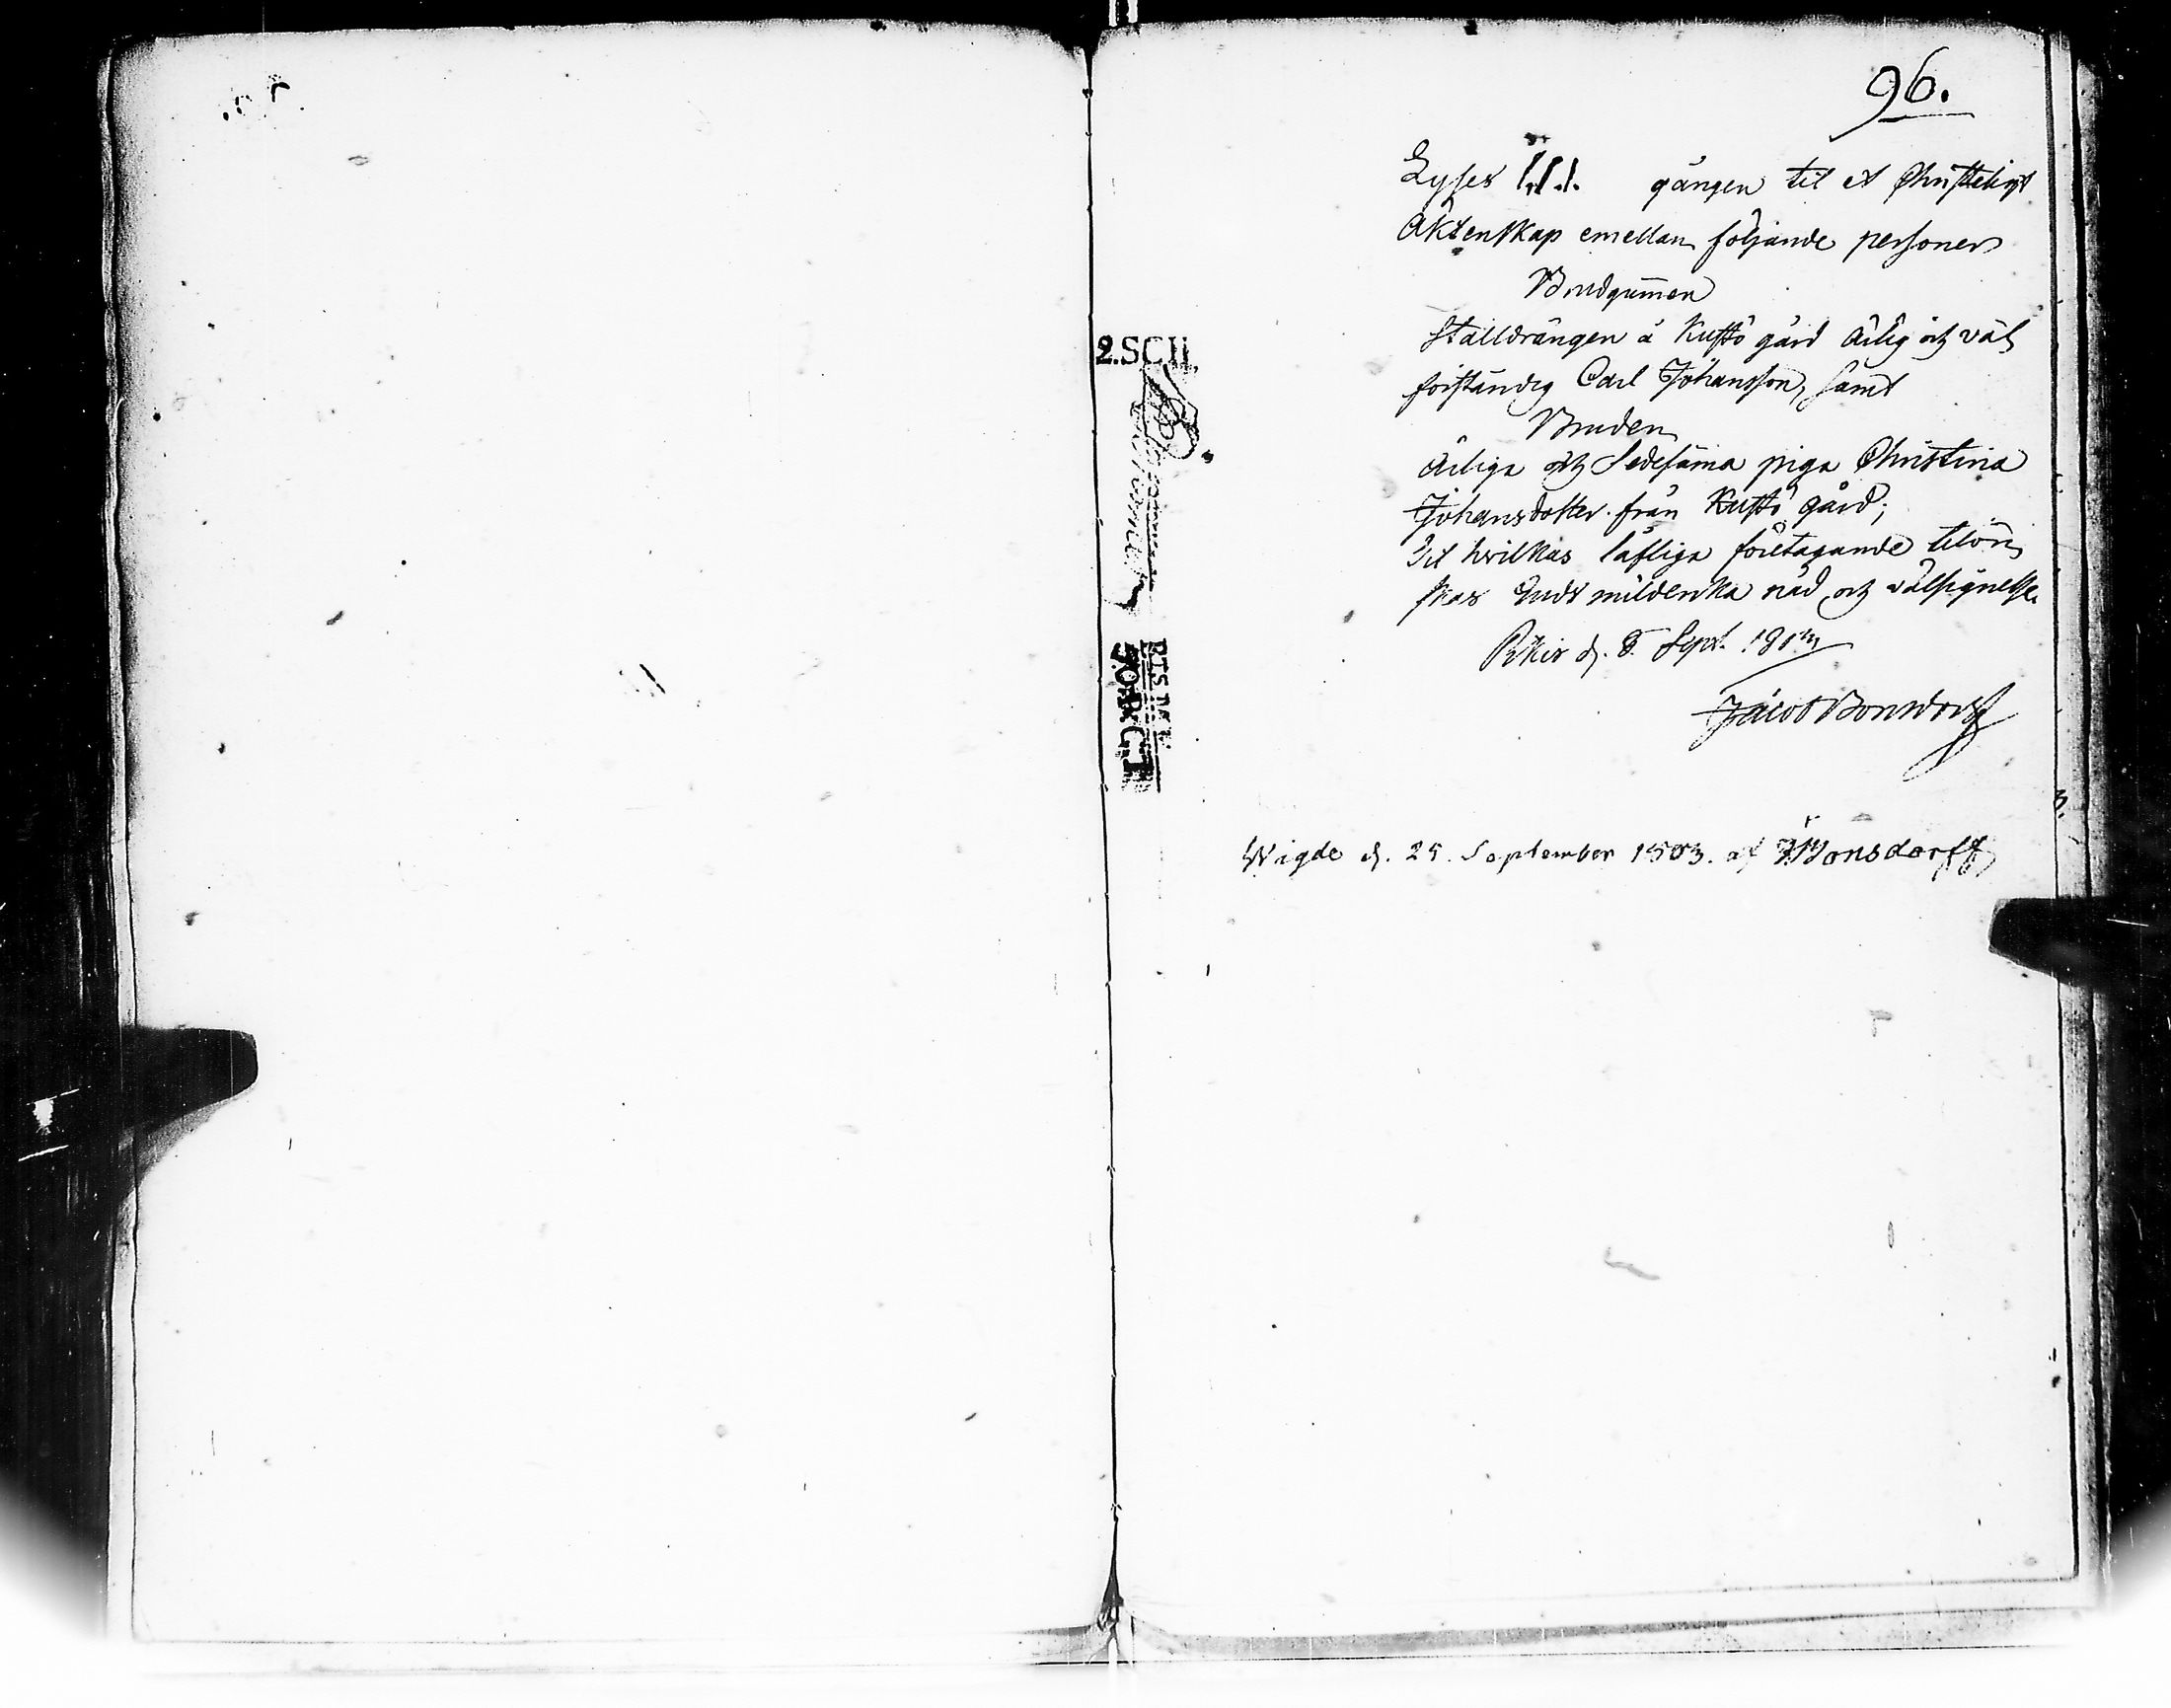 96.
Lyses 1.1.1. gången til et Christeligt
Äktenskap emellan följande personer
Brudgum̄en
Stalldrängen å Kustö gård ärlig och väl
förståndig Carl Johansson, samt
Bruden
ärliga och Sedesama piga Christina
Johansdotter från Kustö gård;
Til hvilkas lafliga företagande tilön
skas Guds mildrika nåd och välsignelse.
Pikis d. 8 Sept. 1803
Jacob Bonsdorff
Wigde d. 25. September 1803. af JBonsdorff
2.SCII.